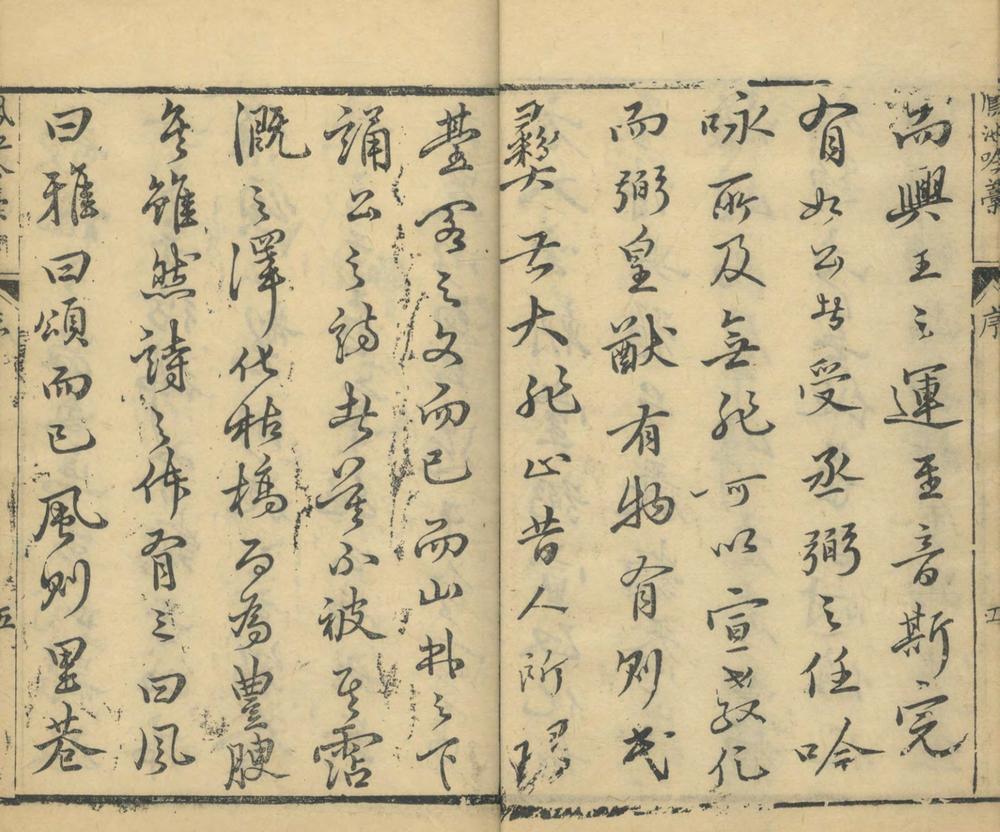 鳳池吟藁
序
五
而興王之運至音斯完
有如公者受丞弼之任吟
咏所及無非可以宣敎化
而弼皇猷有物有則民
彝甚大非止昔人所謂
臺閣之文而已而山林之下
誦公之詩者莫不被其霑
漑之澤化枯槁而為豊腴
矣雖然詩之作有三曰風
曰雅曰頌而已風則里巷
五